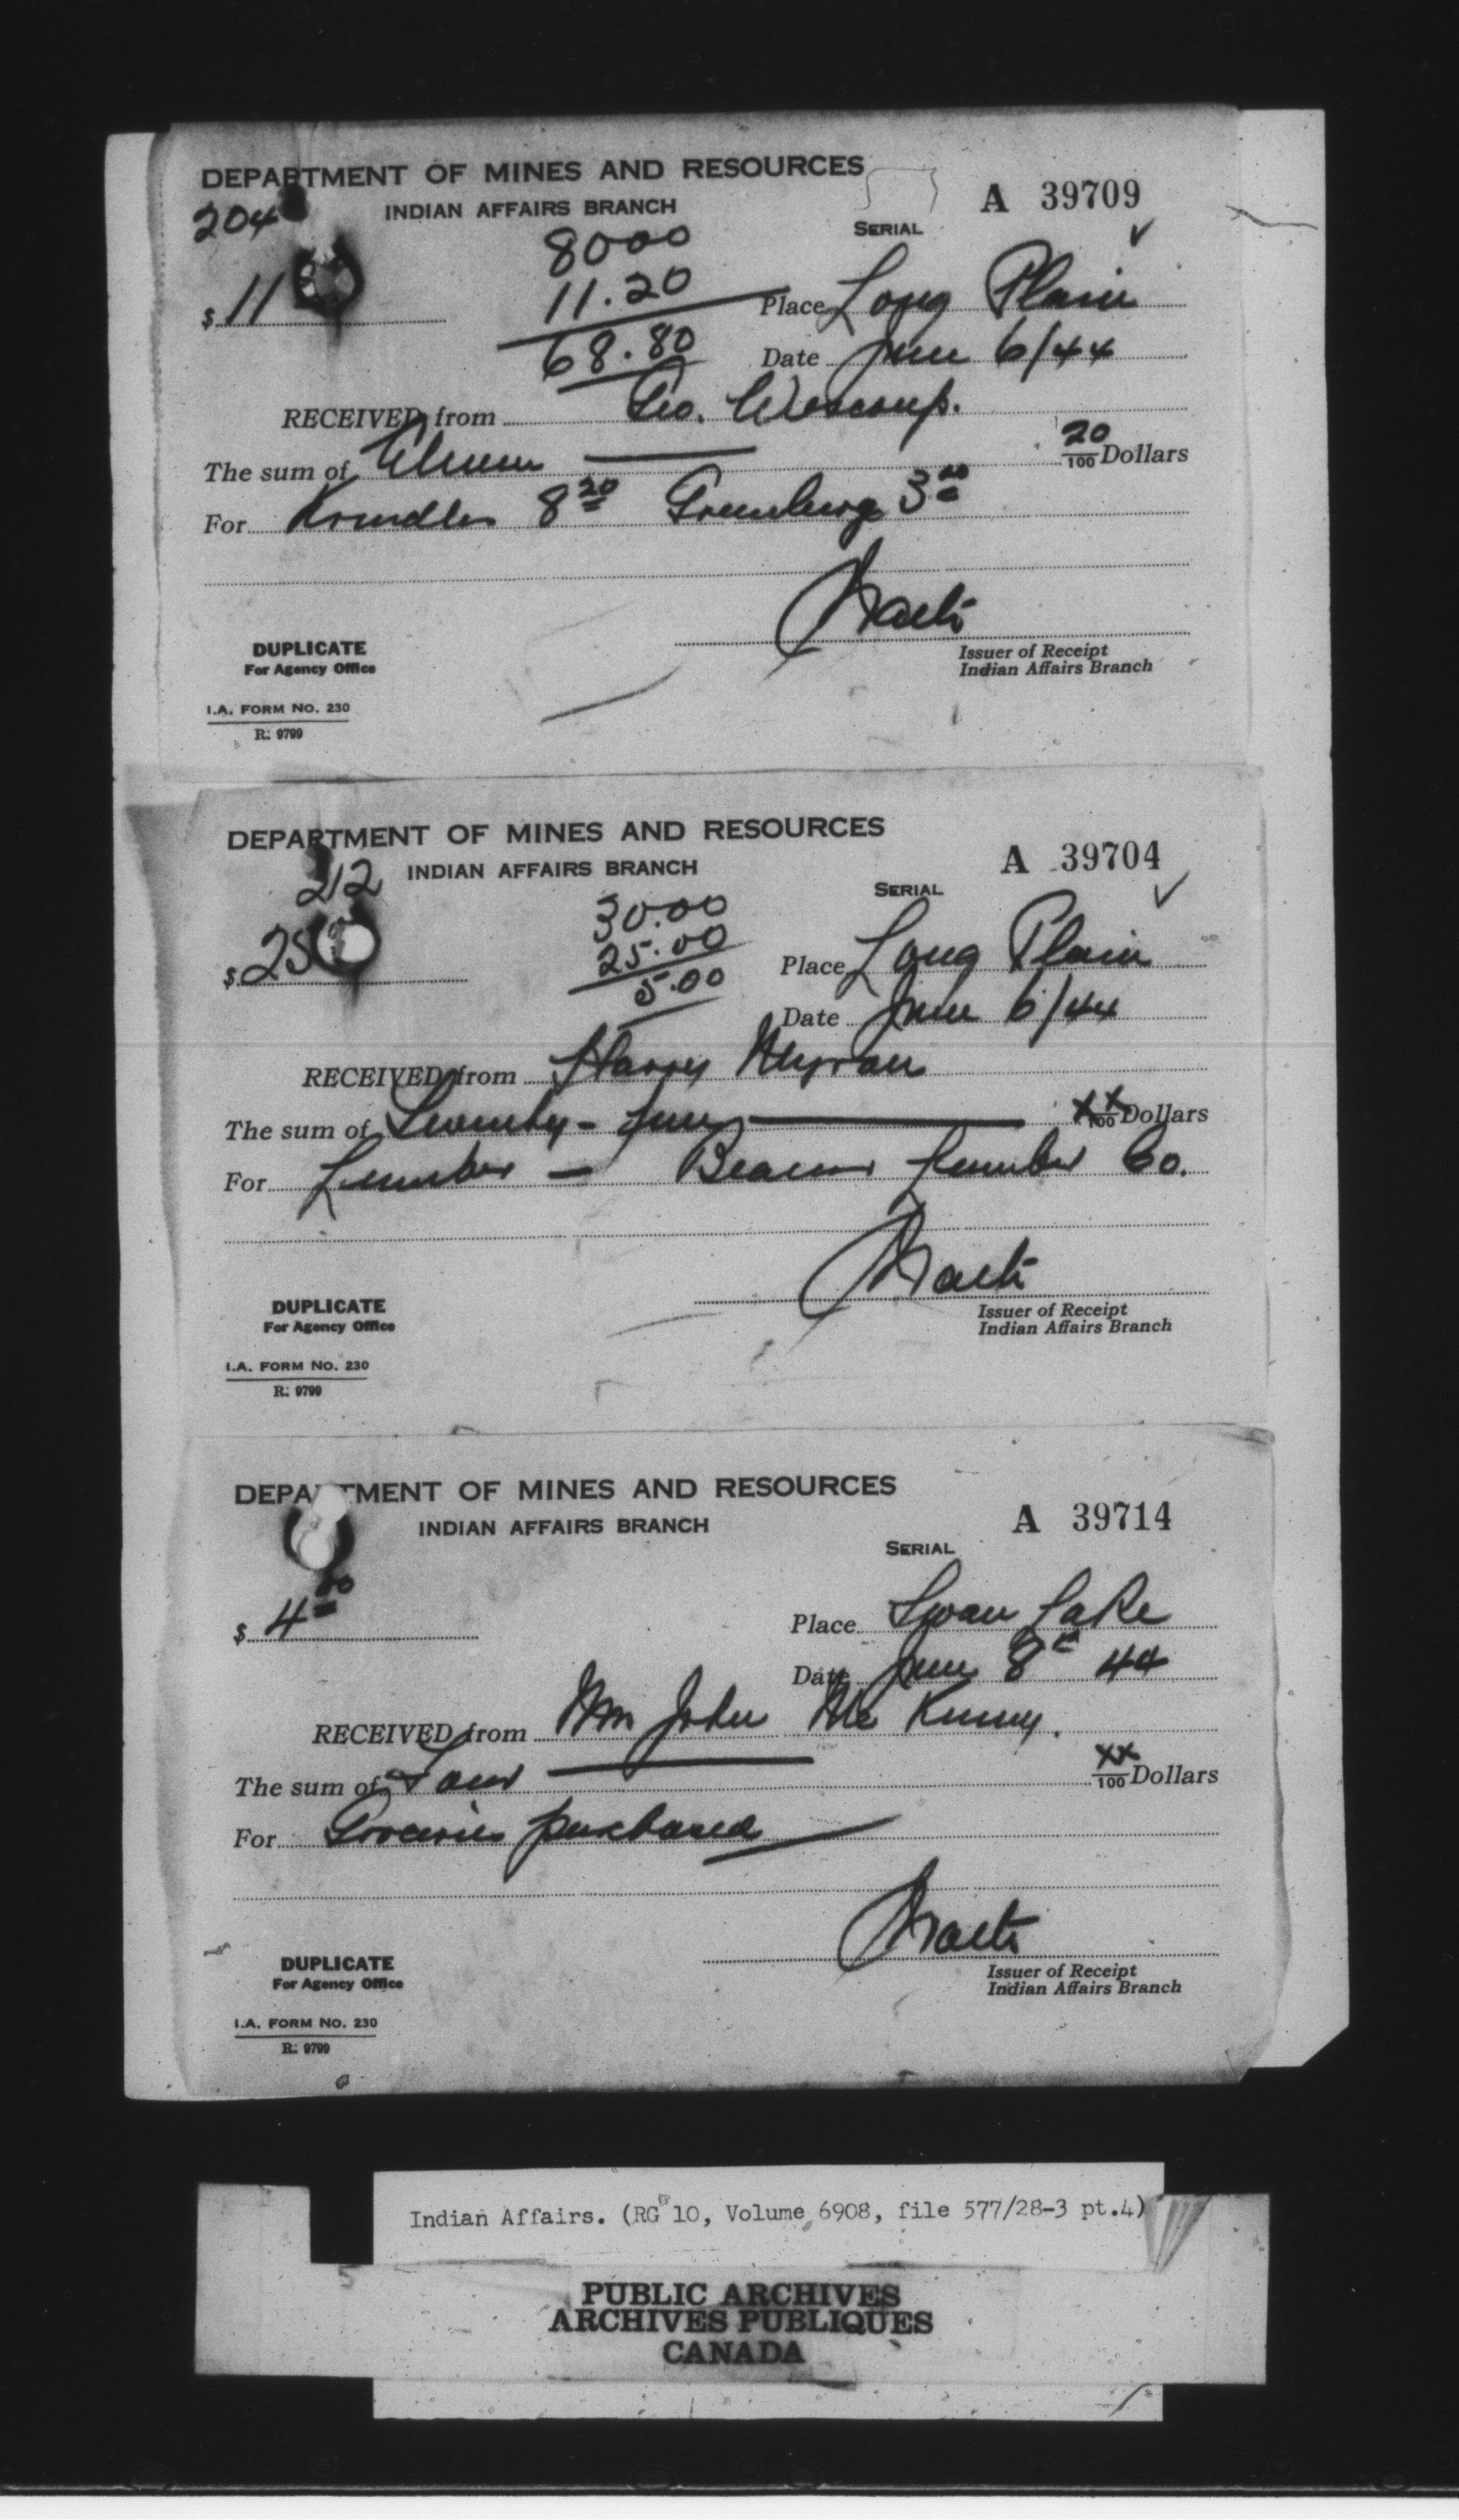 DEPARTMENT OF MINES AND RESOURCES
INDIAN AFFAIRS BRANCH
A 39709
SERIAL
204
8000
11.20
68.80
$ 11
Place Long Plain
Date June 6/44
RECEIVED from Geo. Wescoup.
The sum of Eleven 20/100 Dollars
For 8 20 Greenberg 3 00
Issuer of Receipt
Indian Affairs Branch
DUPLICATE
For Agency Office
I.A. FORM No. 230
R. 9799
DEPARTMENT OF MINES AND RESOURCES
INDIAN AFFAIRS BRANCH
A 39704
SERIAL
212
30.00
25.00
5.00
$ 25
Place Long Plain
Date June 6/44
RECEIVED from Harry Myran
The sum of Twenty-five xx/100 Dollars
For Lumber - Beaver Lumber Co.
Issuer of Receipt
Indian Affairs Branch
DUPLICATE
For Agency Office
I.A. FORM No. 230
R. 9799
DEPARTMENT OF MINES AND RESOURCES
INDIAN AFFAIRS BRANCH
A 39714
SERIAL
$ 4 00
Place Swan Lake
Date June 8th 44
RECEIVED from John Mc Kinney.
The sum of Four xx/100 Dollars
For Groceries purchased
Issuer of Receipt
Indian Affairs Branch
DUPLICATE
For Agency Office
I.A. FORM No. 230
R. 9799
Indian Affairs. (RG 10, Volume 6908, file 577/28-3 pt.4)
PUBLIC ARCHIVES
ARCHIVES PUBLIQUES
CANADA